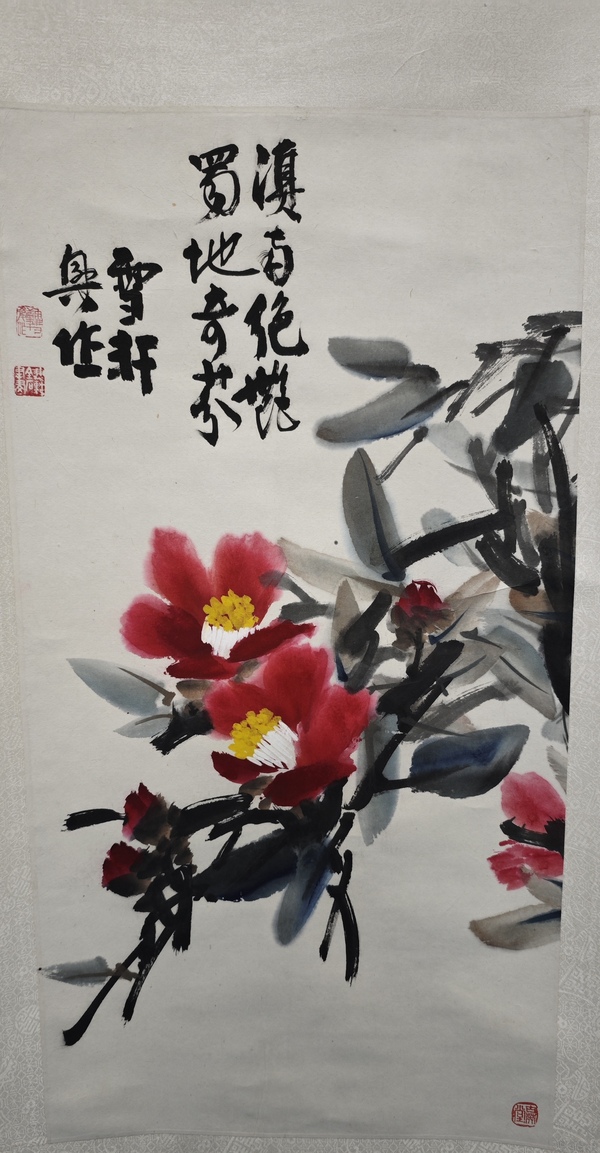 滇南绝艳
蜀地奇芬
雪轩
兴作